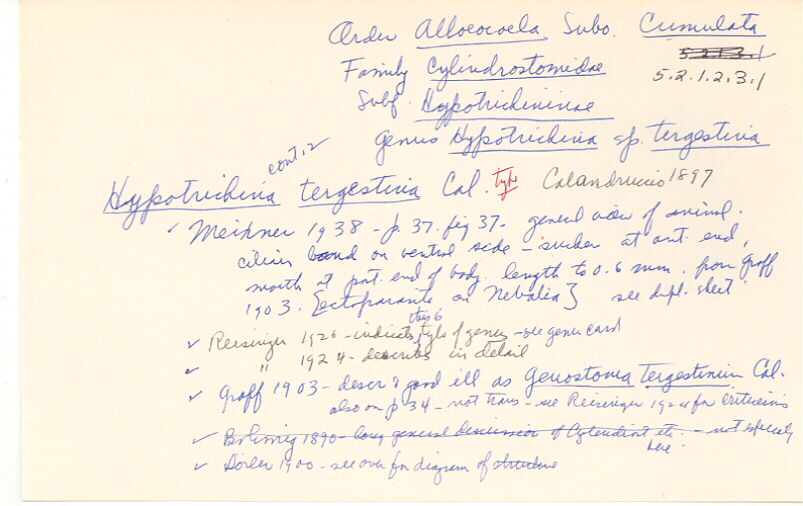 Order Alloeocoela Subo. Cumulata
5.2.1.3.1
Family Cylindrostomidae 5.2.1.2.3.1
Subf. Hypotrichininae
Genus Hypotrichina sp. tergestina
cont. 2
Hypotrichina tergestina Cal. type Calandruccio 1897
✓ Meixner 1938 - p. 37. fig 37 - general view of animal.
cilia band on ventral side - sucker at ant. end,
mouth at post. end of body. length to 0.6 mm. from Graff
1903. [ectoparasite on Nebalia] see dupl. sheet
this G
✓ Reisinger 1926 - indicates type of genus - see genus card
✓ " 1924 - describes in detail
✓ Graff 1903 - descr & good ill as Genostoma tergestinum Cal.
also on p 34 - not trans - see Reisinger 1924 for criticisms
✓ Böhmig 1890 - long general discussion of Cylindrost etc. - not especially
here
✓ Dörler 1900 - see over for diagram of structure